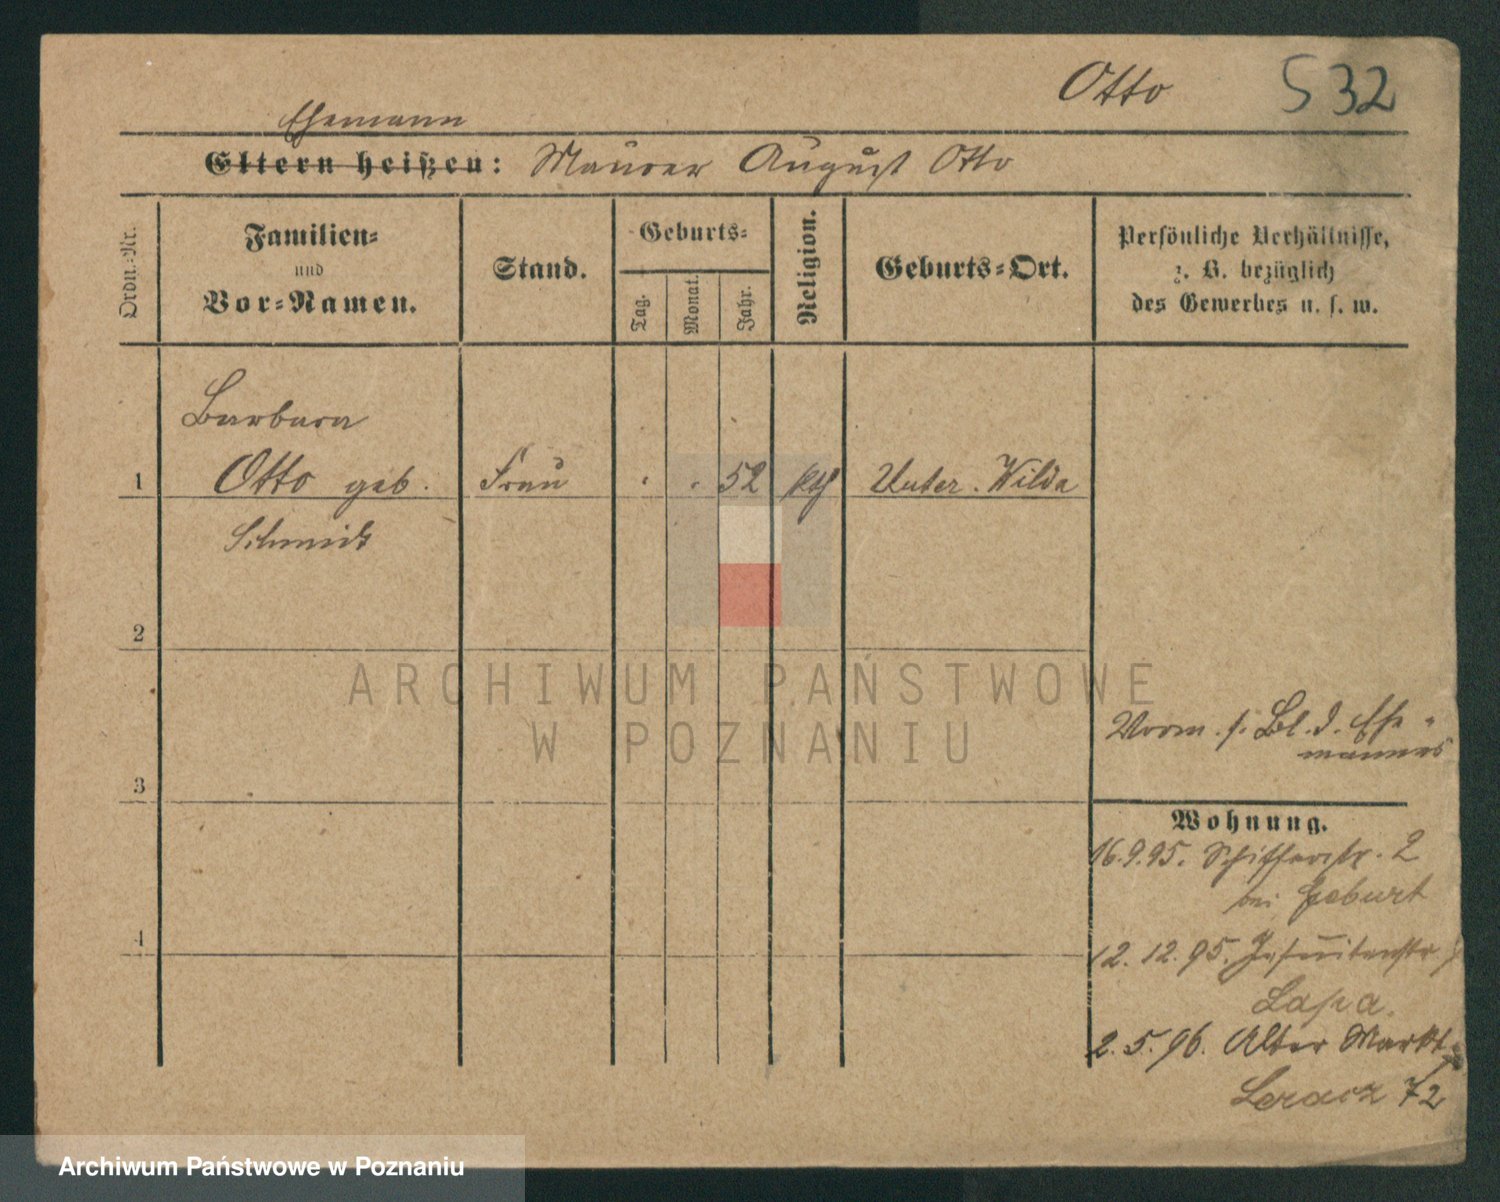 Otto 532
Ehemann
Eltern heißen: Maurer August Otto
Ordn.-Nr.
Familien-
und
Vor-Namen.
Stand.
Geburts-
Tag.
Monat.
Jahr.
Religion.
Geburts-Ort.
Persönliche Verhältnisse,
z. B. bezüglich
des Gewerbes u. s. w.
Barbara
1 Otto geb. Frau 52 kth Unter-Wilda
Schmidt
2
3
4
Vorm. s. Bl. d. Ehe-
mannes
Wohnung.
16.9.95. Schifferstr. 2
bei Geburt
12.12.95. Jesuitenstr.
Lapa.
2.5.96. Alter Markt
72
ARCHIWUM PAŃSTWOWE
W POZNANIU
Archiwum Państwowe w Poznaniu